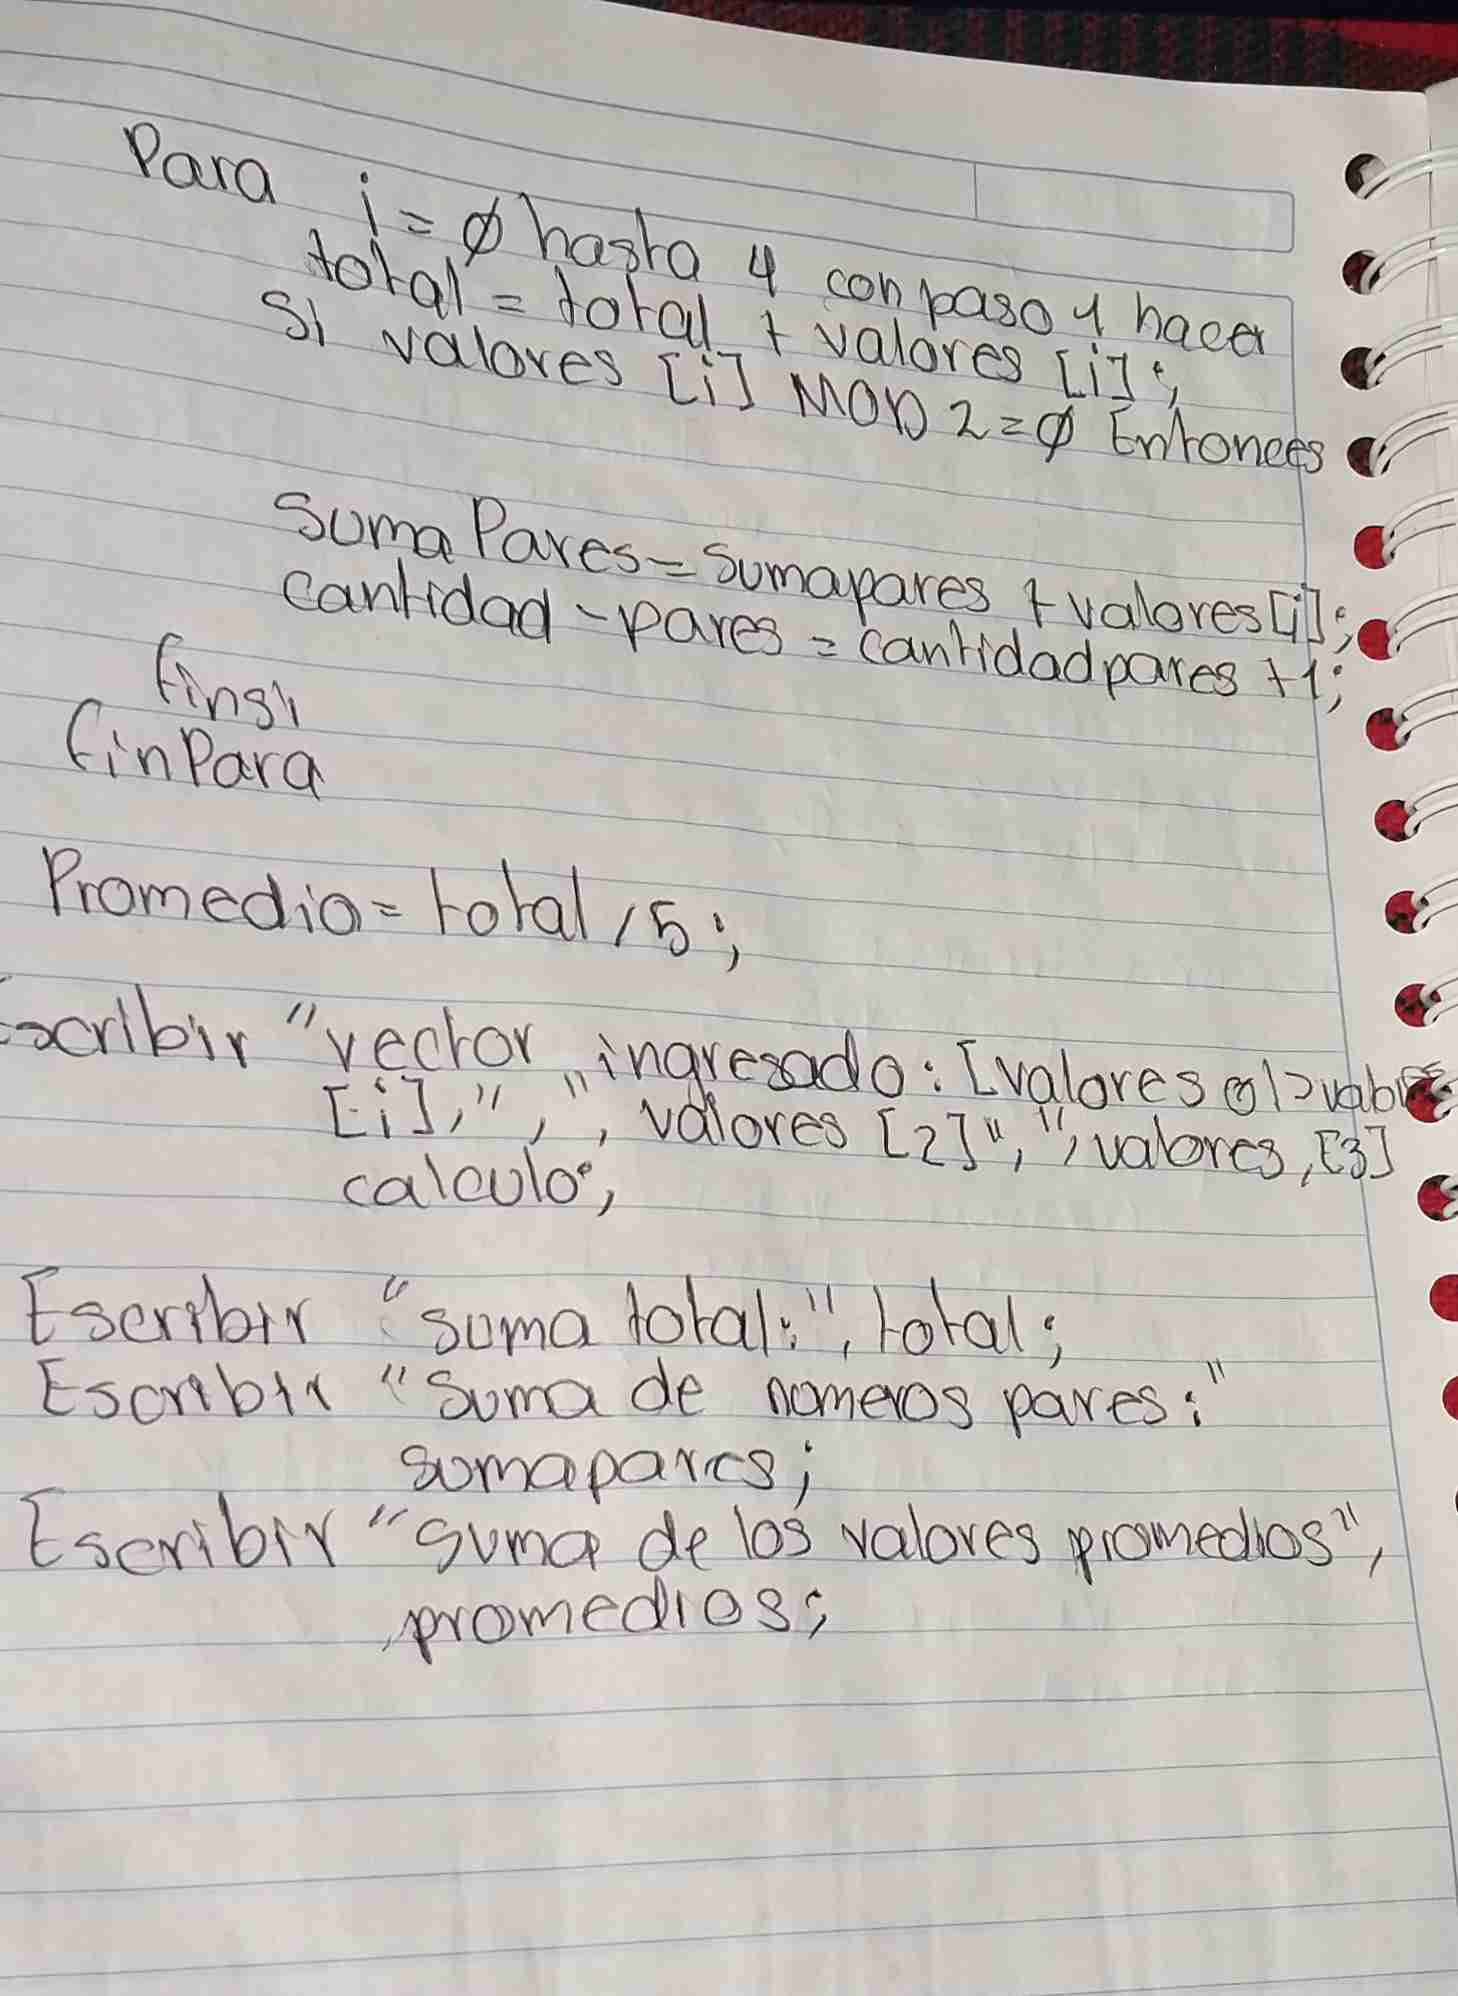 Para i = 0 hasta 4 con paso 1 hacer
total = total + valores [i];
Si valores [i] MOD 2 = 0 Entonces
Suma Pares = Sumapares + valores [i];
cantidad - pares = cantidadpares + 1;
finsi
finPara
Promedio = total / 5;
scribir "vector ingresado: [valores
[i], ", ", valores [2] ", ", valores, [3]
calculo;
Escribir "suma total:", total;
Escribir "Suma de nomeros pares:"
sumapares;
Escribir "suma de los valores promedios",
promedios;